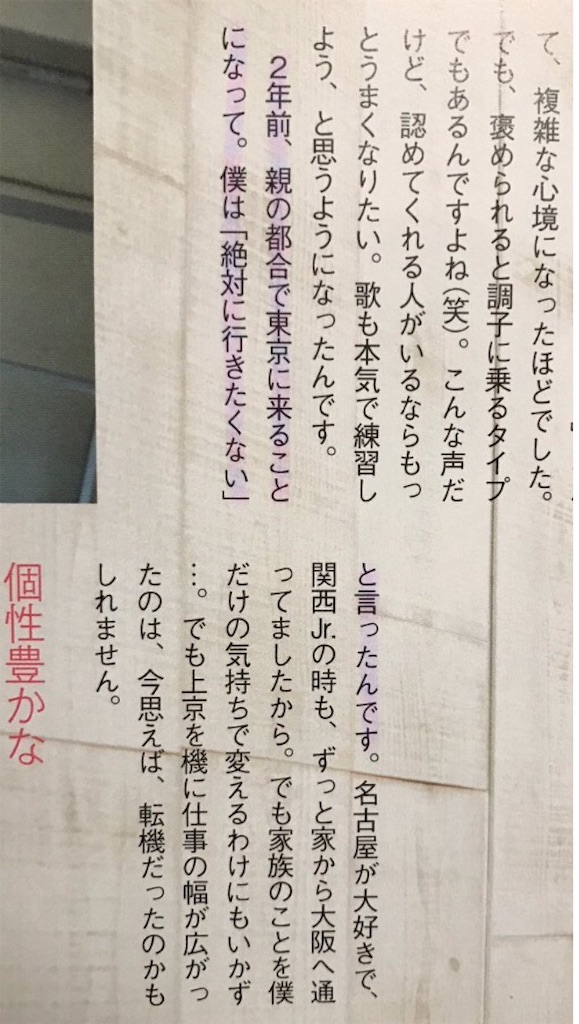 て、複雑な心境になったほどでした。
でも、褒められると調子に乗るタイプ
でもあるんですよね(笑)。こんな声だ
けど、認めてくれる人がいるならもっ
とうまくなりたい。歌も本気で練習し
よう、と思うようになったんです。
2年前、親の都合で東京に来ること
になって。僕は「絶対に行きたくない」
と言ったんです。名古屋が大好きで、
関西Jr.の時も、ずっと家から大阪へ通
ってましたから。でも家族のことを僕
だけの気持ちで変えるわけにもいかず
…。でも上京を機に仕事の幅が広がっ
たのは、今思えば、転機だったのかも
しれません。
個性豊かな